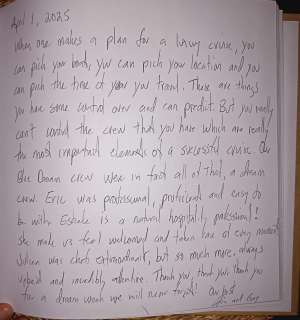 April 1, 2025
When one makes a plan for a luxury cruise, you
can pick your boats, you can pick your location and you
can push the time of year you travel. These are things
you have some control over and can predict. But you really
can't control the crew that you have which are really
the most important elements of a successful cruise. Our
Blue Dream crew were in fact all of that, a dream
crew. Eric was professional, proficient and easy to
be with. Estrella is a natural hospitality professional!
She made us feel welcomed and taken care of every moment
Julian was chef extraordinaire, but so much more. always
upbeat and incredibly attentive. Thank you, thank you, thank you
for a dream week we will never forget! Our best
and Gary